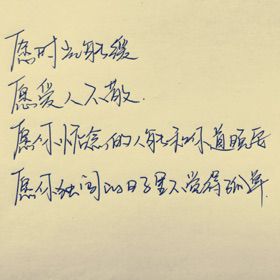 愿时光能缓
愿爱人不散.
愿你惦念的人能和你道晚安
愿你独闯的日子里不觉得孤单.